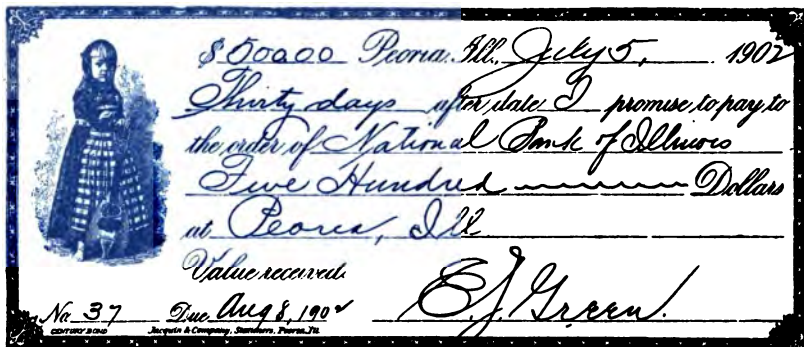 $ 500.00 Peoria, Ill. July 5, 1902
Thirty days after date I promise to pay to
the order of National Bank of Illinois
Five Hundred Dollars
at Peoria, Ill
Value received.
No. 37 Due Aug 8, 1902 E. J. Green.
CENTURY BOND Jacquin & Company, Stationers, Peoria, Ill.